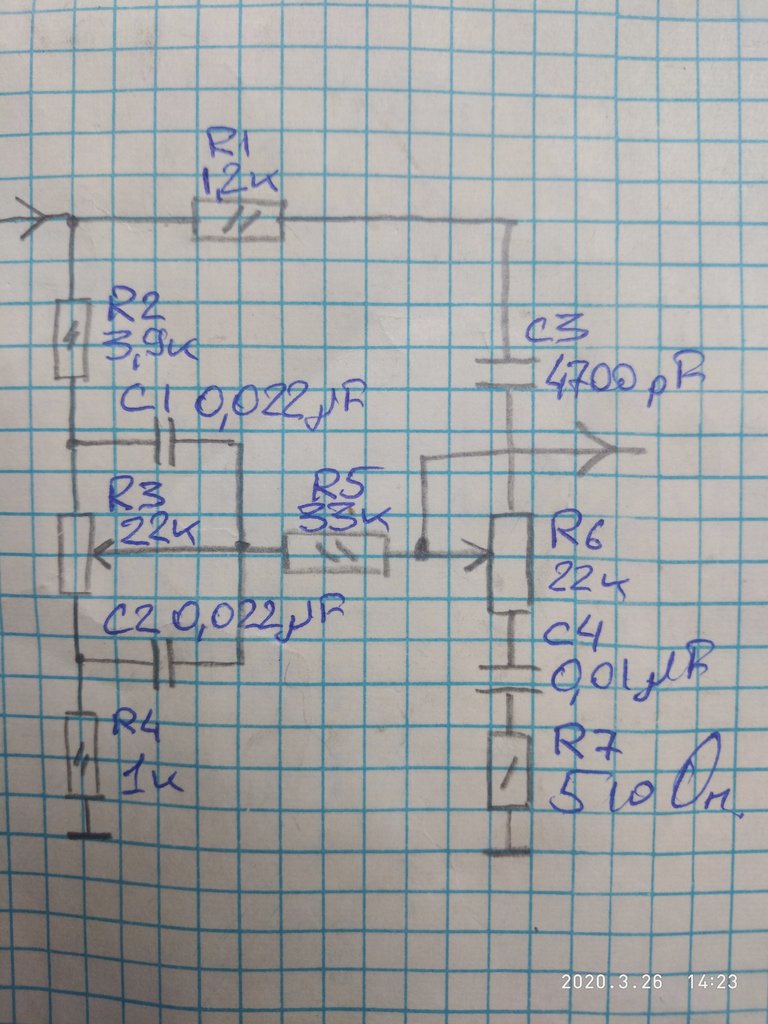 R1
1,2к
R2
3,9к
C3
4700 pF
C1 0,022 μF
R3
22к
R5
33к
R6
22к
C2 0,022 μF
C4
0,01 μF
R4
1к
R7
510 Ом
2020.3.26 14:23